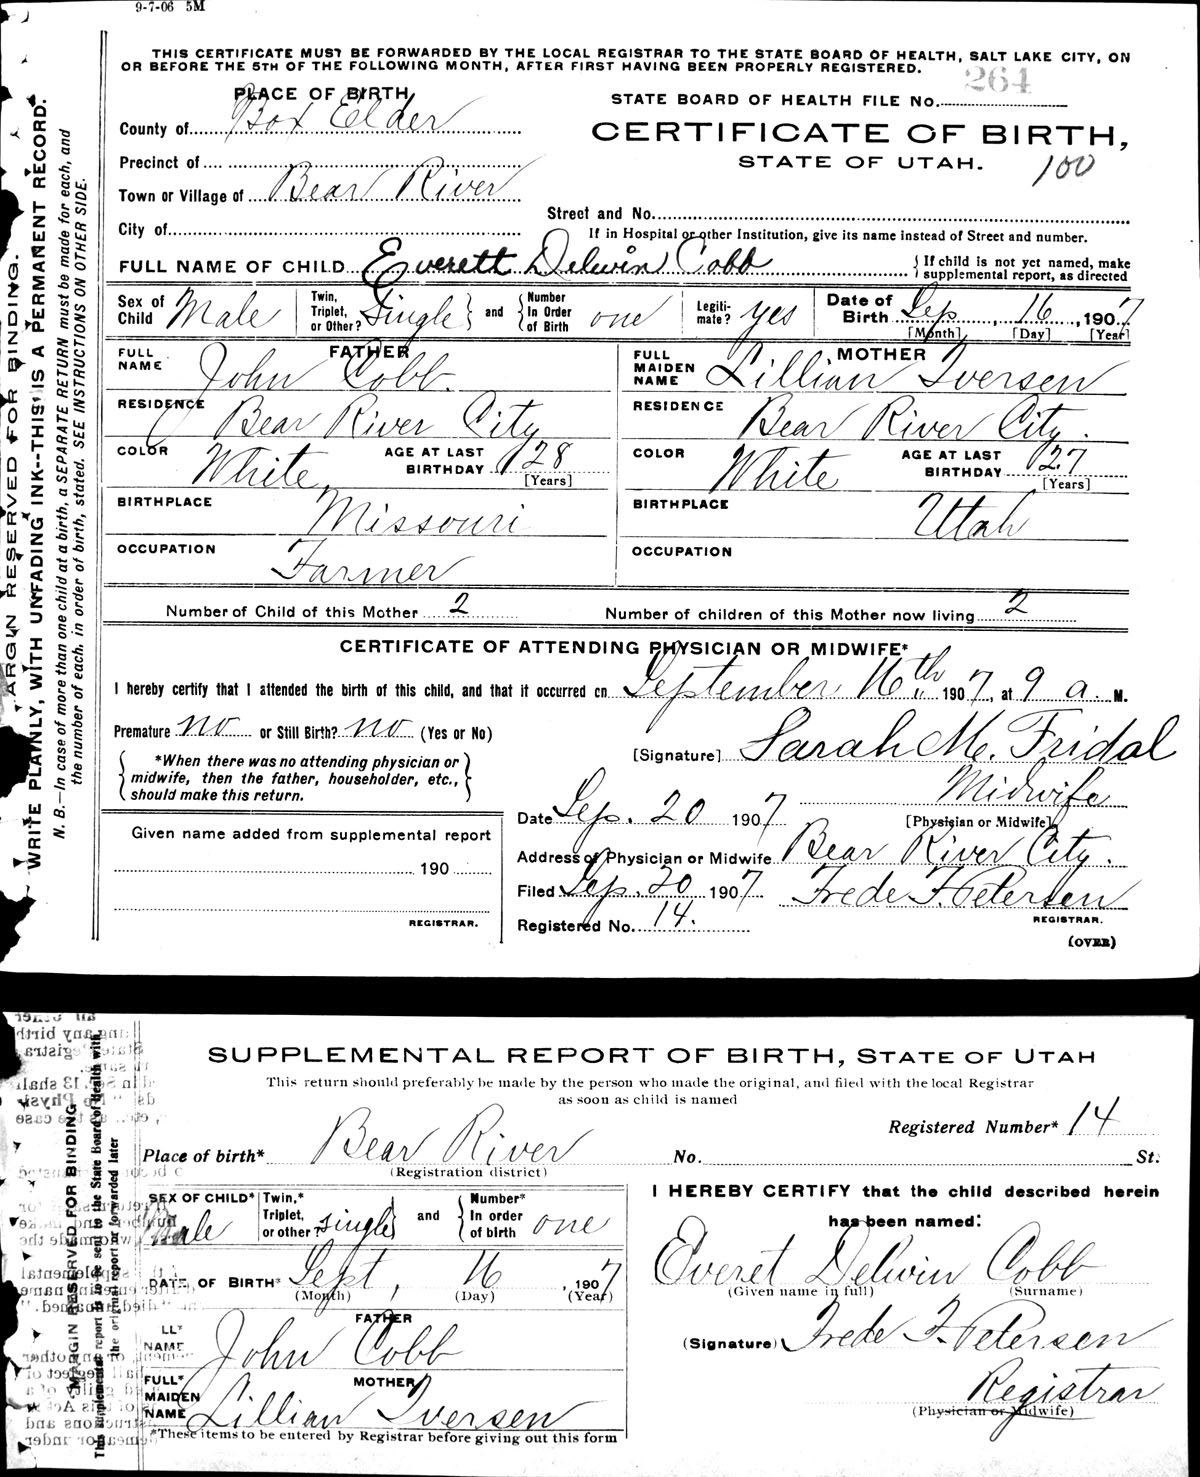 9-7-06 5M
THIS CERTIFICATE MUST BE FORWARDED BY THE LOCAL REGISTRAR TO THE STATE BOARD OF HEALTH, SALT LAKE CITY, ON
OR BEFORE THE 5TH OF THE FOLLOWING MONTH, AFTER FIRST HAVING BEEN PROPERLY REGISTERED.
264
STATE BOARD OF HEALTH FILE No.
CERTIFICATE OF BIRTH,
STATE OF UTAH.
100
PLACE OF BIRTH
County of Box Elder
Precinct of
Town or Village of Bear River
City of
Street and No.
If in Hospital or other Institution, give its name instead of Street and number.
FULL NAME OF CHILD Everett Delwin Cobb
If child is not yet named, make
supplemental report, as directed
Sex of Child Male
Twin, Triplet, or Other? Single and Number In Order of Birth one
Legitimate? yes
Date of Birth Sep. 16, 1907
[Month] [Day] [Year]
FATHER
FULL NAME John Cobb.
RESIDENCE Bear River City
COLOR White AGE AT LAST BIRTHDAY 28 [Years]
BIRTHPLACE Missouri
OCCUPATION Farmer
MOTHER
FULL MAIDEN NAME Lillian Iversen
RESIDENCE Bear River City.
COLOR White AGE AT LAST BIRTHDAY 27 [Years]
BIRTHPLACE Utah
OCCUPATION
Number of Child of this Mother 2 Number of children of this Mother now living 2
CERTIFICATE OF ATTENDING PHYSICIAN OR MIDWIFE*
I hereby certify that I attended the birth of this child, and that it occurred on September 16th 1907, at 9 a. M.
Premature no or Still Birth? no (Yes or No)
*When there was no attending physician or
midwife, then the father, householder, etc.,
should make this return.
[Signature] Sarah M. Fridal
Midwife
[Physician or Midwife]
Date Sep. 20 1907
Address of Physician or Midwife Bear River City.
Filed Sep. 20 1907 Frede F. Petersen
REGISTRAR.
Registered No. 14.
(OVER)
Given name added from supplemental report
190
REGISTRAR.
MARGIN RESERVED FOR BINDING.
WRITE PLAINLY, WITH UNFADING INK--THIS IS A PERMANENT RECORD.
N. B.—In case of more than one child at a birth, a SEPARATE RETURN must be made for each, and
the number of each, in order of birth, stated. SEE INSTRUCTIONS ON OTHER SIDE.
SUPPLEMENTAL REPORT OF BIRTH, STATE OF UTAH
This return should preferably be made by the person who made the original, and filed with the local Registrar
as soon as child is named
Registered Number* 14
Place of birth* Bear River No. St.
(Registration district)
SEX OF CHILD* Male
Twin,* Triplet, or other? single and Number* In order of birth one
DATE OF BIRTH* Sept, 16, 1907
(Month) (Day) (Year)
FATHER
NAME John Cobb
MOTHER
FULL* MAIDEN NAME Lillian Iversen
*These items to be entered by Registrar before giving out this form
I HEREBY CERTIFY that the child described herein
has been named:
Everet Delwin Cobb
(Given name in full) (Surname)
(Signature) Frede F. Petersen
Registrar
(Physician or Midwife)
MARGIN RESERVED FOR BINDING
This supplemental report is to be sent to the State Board of Health with
the original report or forwarded later